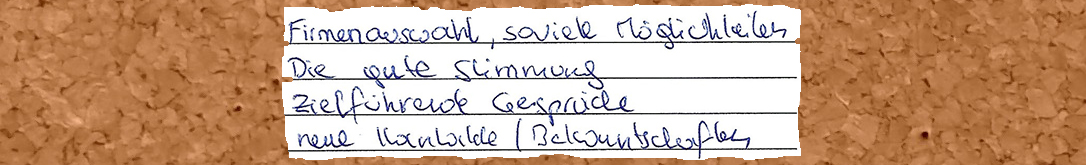 Firmenauswahl, soviele Möglichkeiten
Die gute Stimmung
Zielführende Gespräche
neue Kontakte / Bekanntschaften